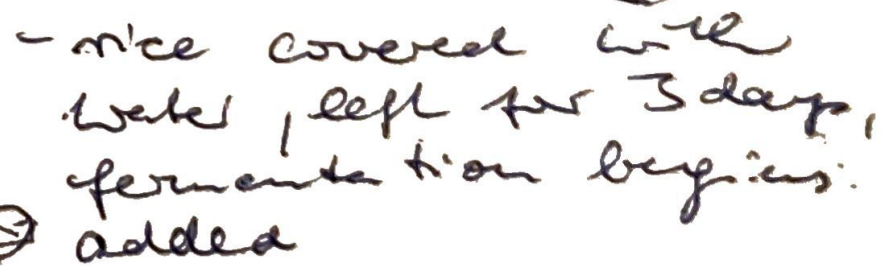 - rice covered with
water, left for 3 days,
fermentation begins.
added